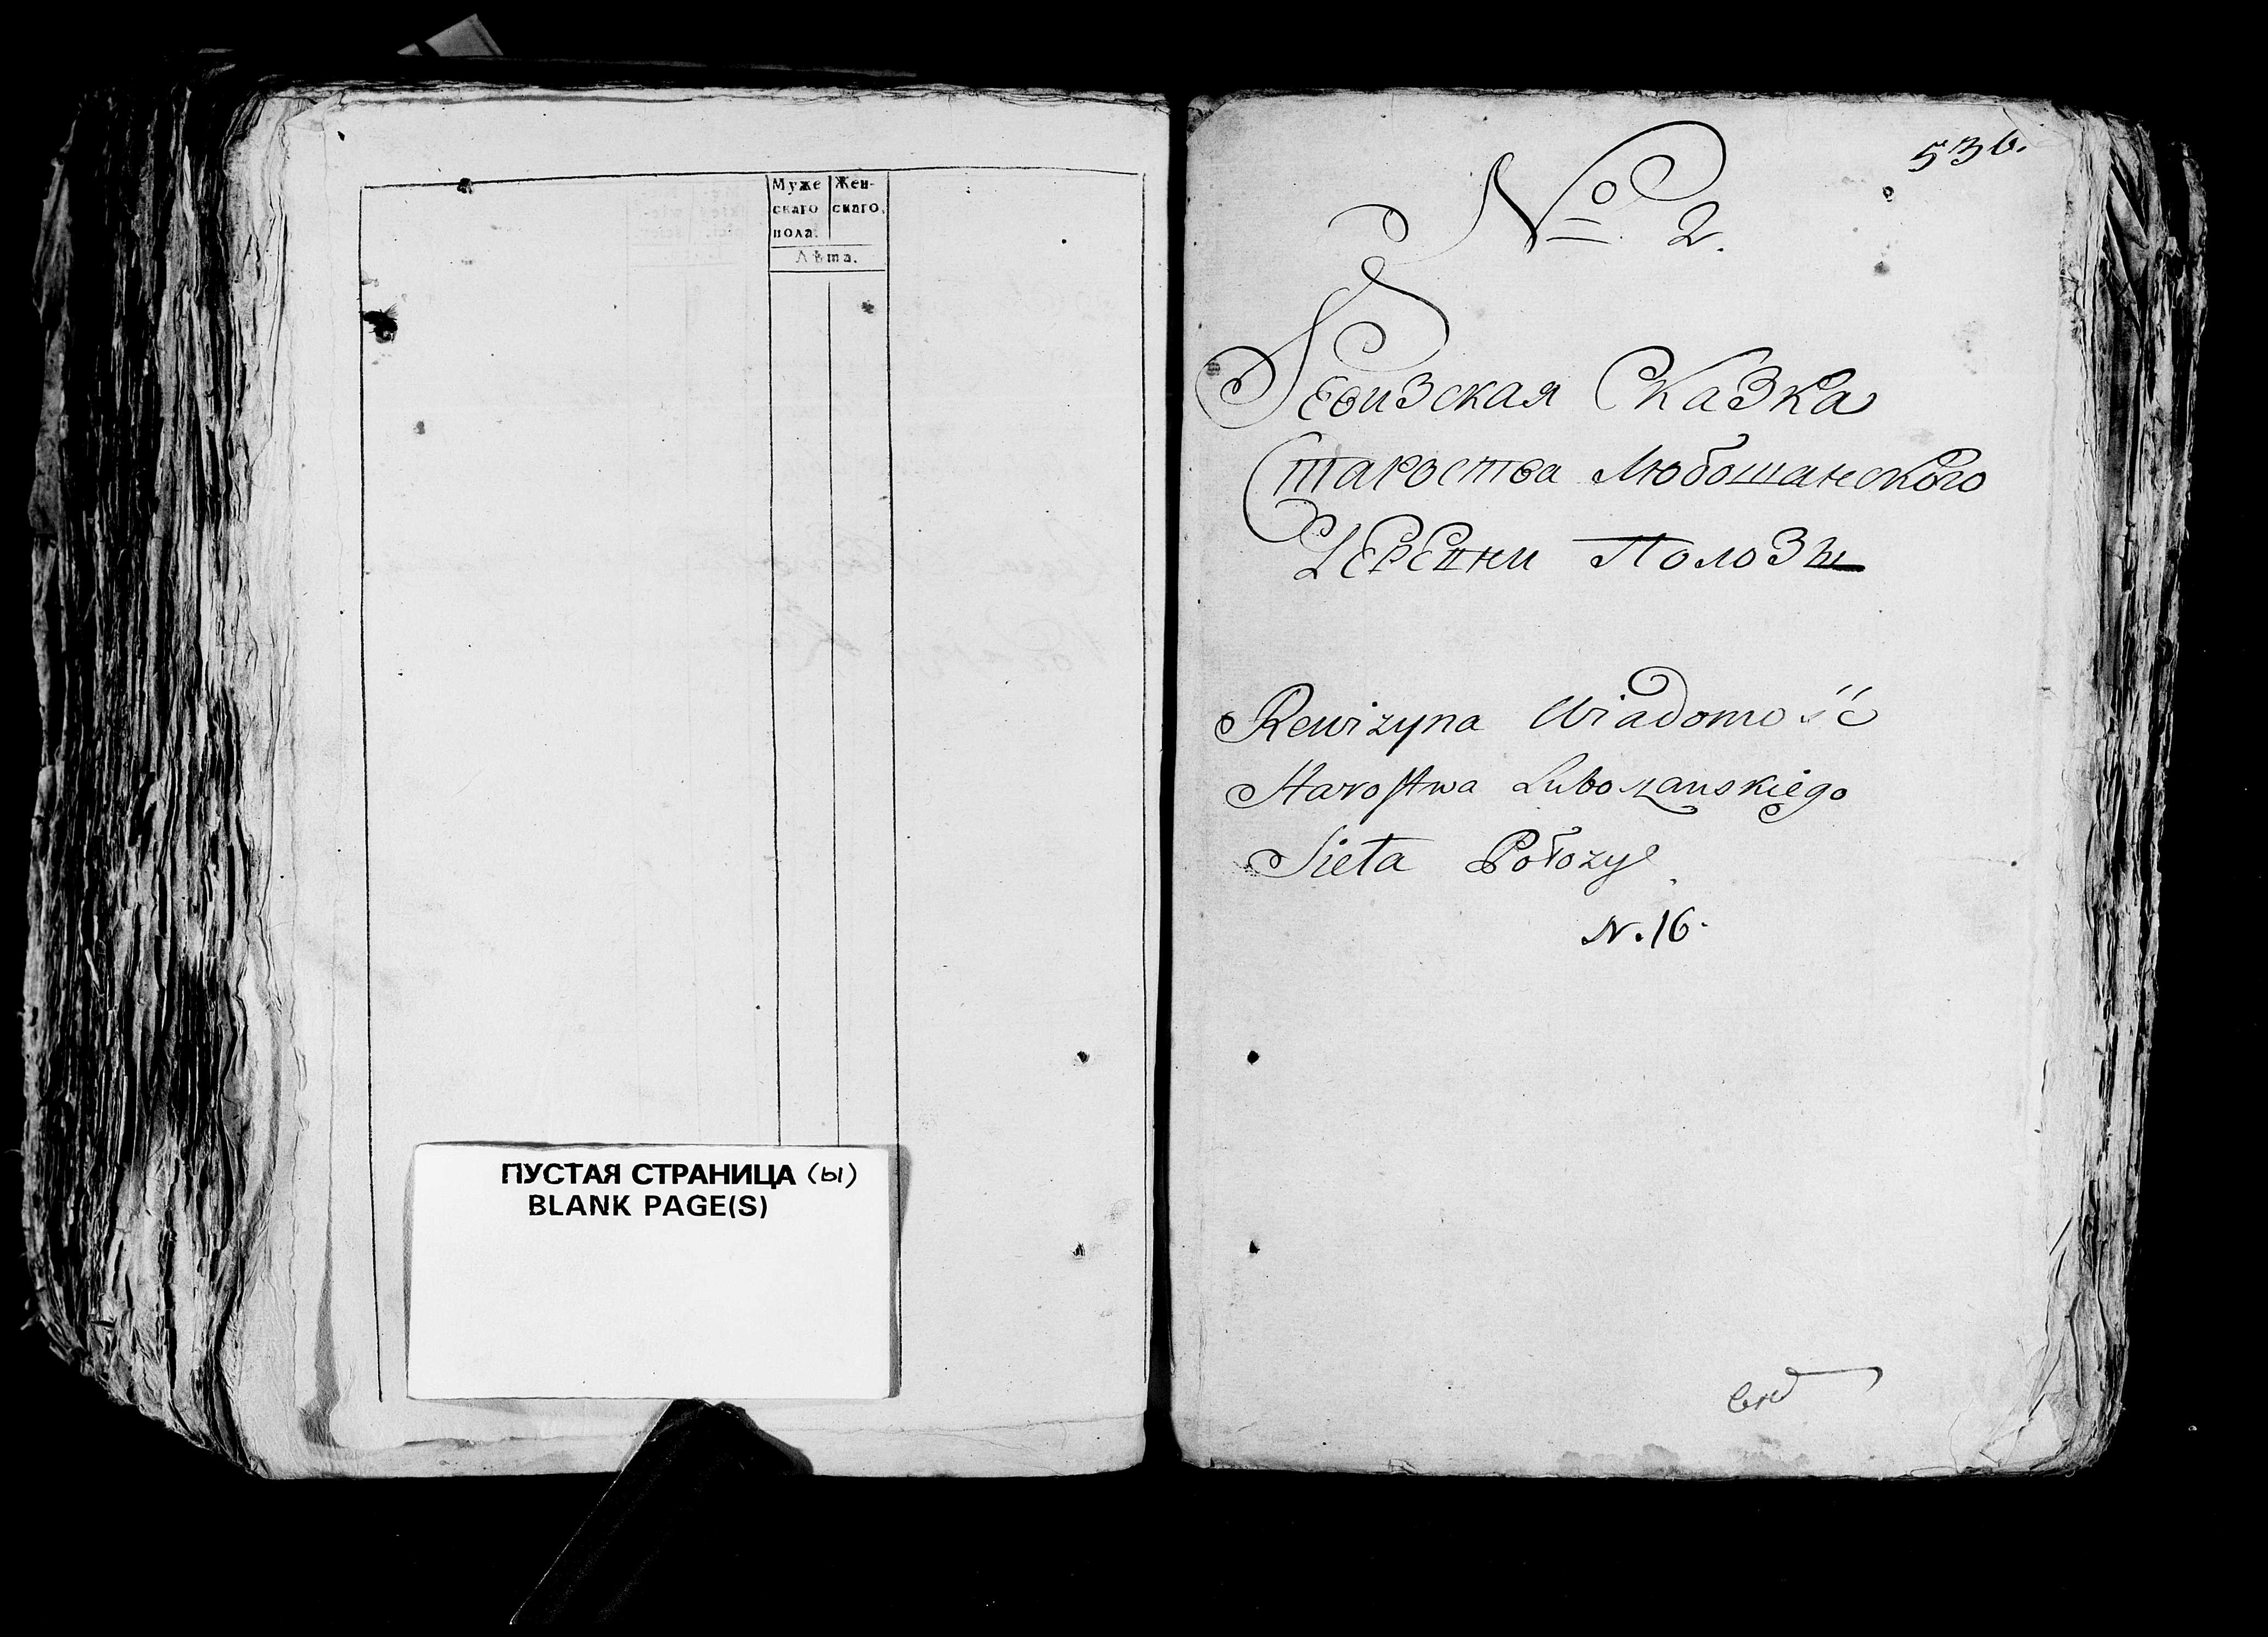 Муже Жен-
скаго скаго.
пола.
Лѣта.
ПУСТАЯ СТРАНИЦА (ы)
BLANK PAGE(S)
536.
№ 2.
Ревизская Сказка
Староства Любошанского
Деревни Полозы
Rewizyna Wiadomość
Starostwa Luboszanskiego
Sieła Połozy
N. 16.